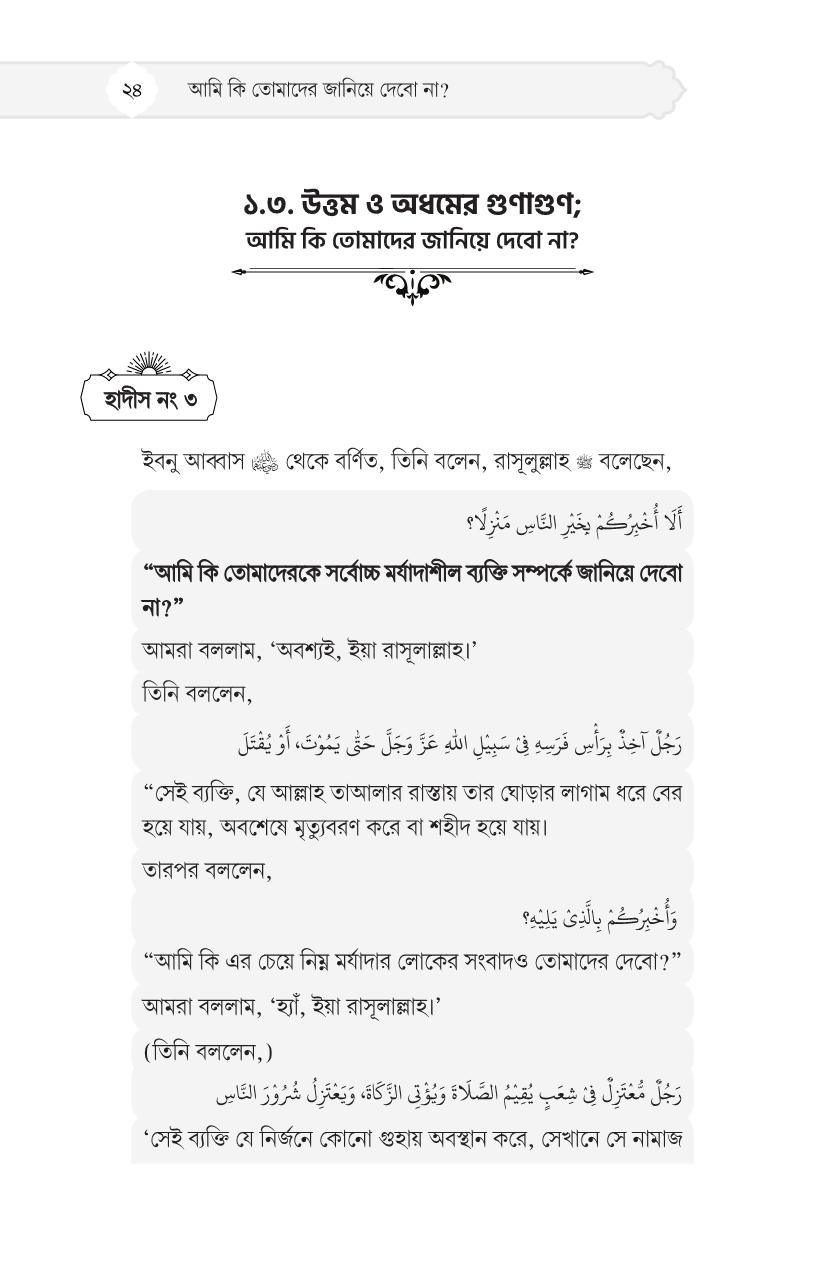 ২৪ আমি কি তোমাদের জানিয়ে দেবো না?
১.৩. উত্তম ও অধমের গুণাগুণ;
আমি কি তোমাদের জানিয়ে দেবো না?
হাদীস নং ৩
ইবনু আব্বাস ﵁ থেকে বর্ণিত, তিনি বলেন, রাসূলুল্লাহ ﷺ বলেছেন,
أَلَا أُخْبِرُكُمْ بِخَيْرِ النَّاسِ مَنْزِلًا؟
“আমি কি তোমাদেরকে সর্বোচ্চ মর্যাদাশীল ব্যক্তি সম্পর্কে জানিয়ে দেবো
না?”
আমরা বললাম, ‘অবশ্যই, ইয়া রাসূলাল্লাহ।’
তিনি বললেন,
رَجُلٌ آخِذٌ بِرَأْسِ فَرَسِهِ فِيْ سَبِيْلِ اللهِ عَزَّ وَجَلَّ حَتّٰى يَمُوْتَ، أَوْ يُقْتَلَ
“সেই ব্যক্তি, যে আল্লাহ তাআলার রাস্তায় তার ঘোড়ার লাগাম ধরে বের
হয়ে যায়, অবশেষে মৃত্যুবরণ করে বা শহীদ হয়ে যায়।
তারপর বললেন,
وَأُخْبِرُكُمْ بِالَّذِيْ يَلِيْهِ؟
“আমি কি এর চেয়ে নিম্ন মর্যাদার লোকের সংবাদও তোমাদের দেবো?”
আমরা বললাম, ‘হ্যাঁ, ইয়া রাসূলাল্লাহ।’
(তিনি বললেন,)
رَجُلٌ مُّعْتَزِلٌ فِيْ شِعَبٍ يُقِيْمُ الصَّلَاةَ وَيُؤْتِي الزَّكَاةَ، وَيَعْتَزِلُ شُرُوْرَ النَّاسِ
‘সেই ব্যক্তি যে নির্জনে কোনো গুহায় অবস্থান করে, সেখানে সে নামাজ